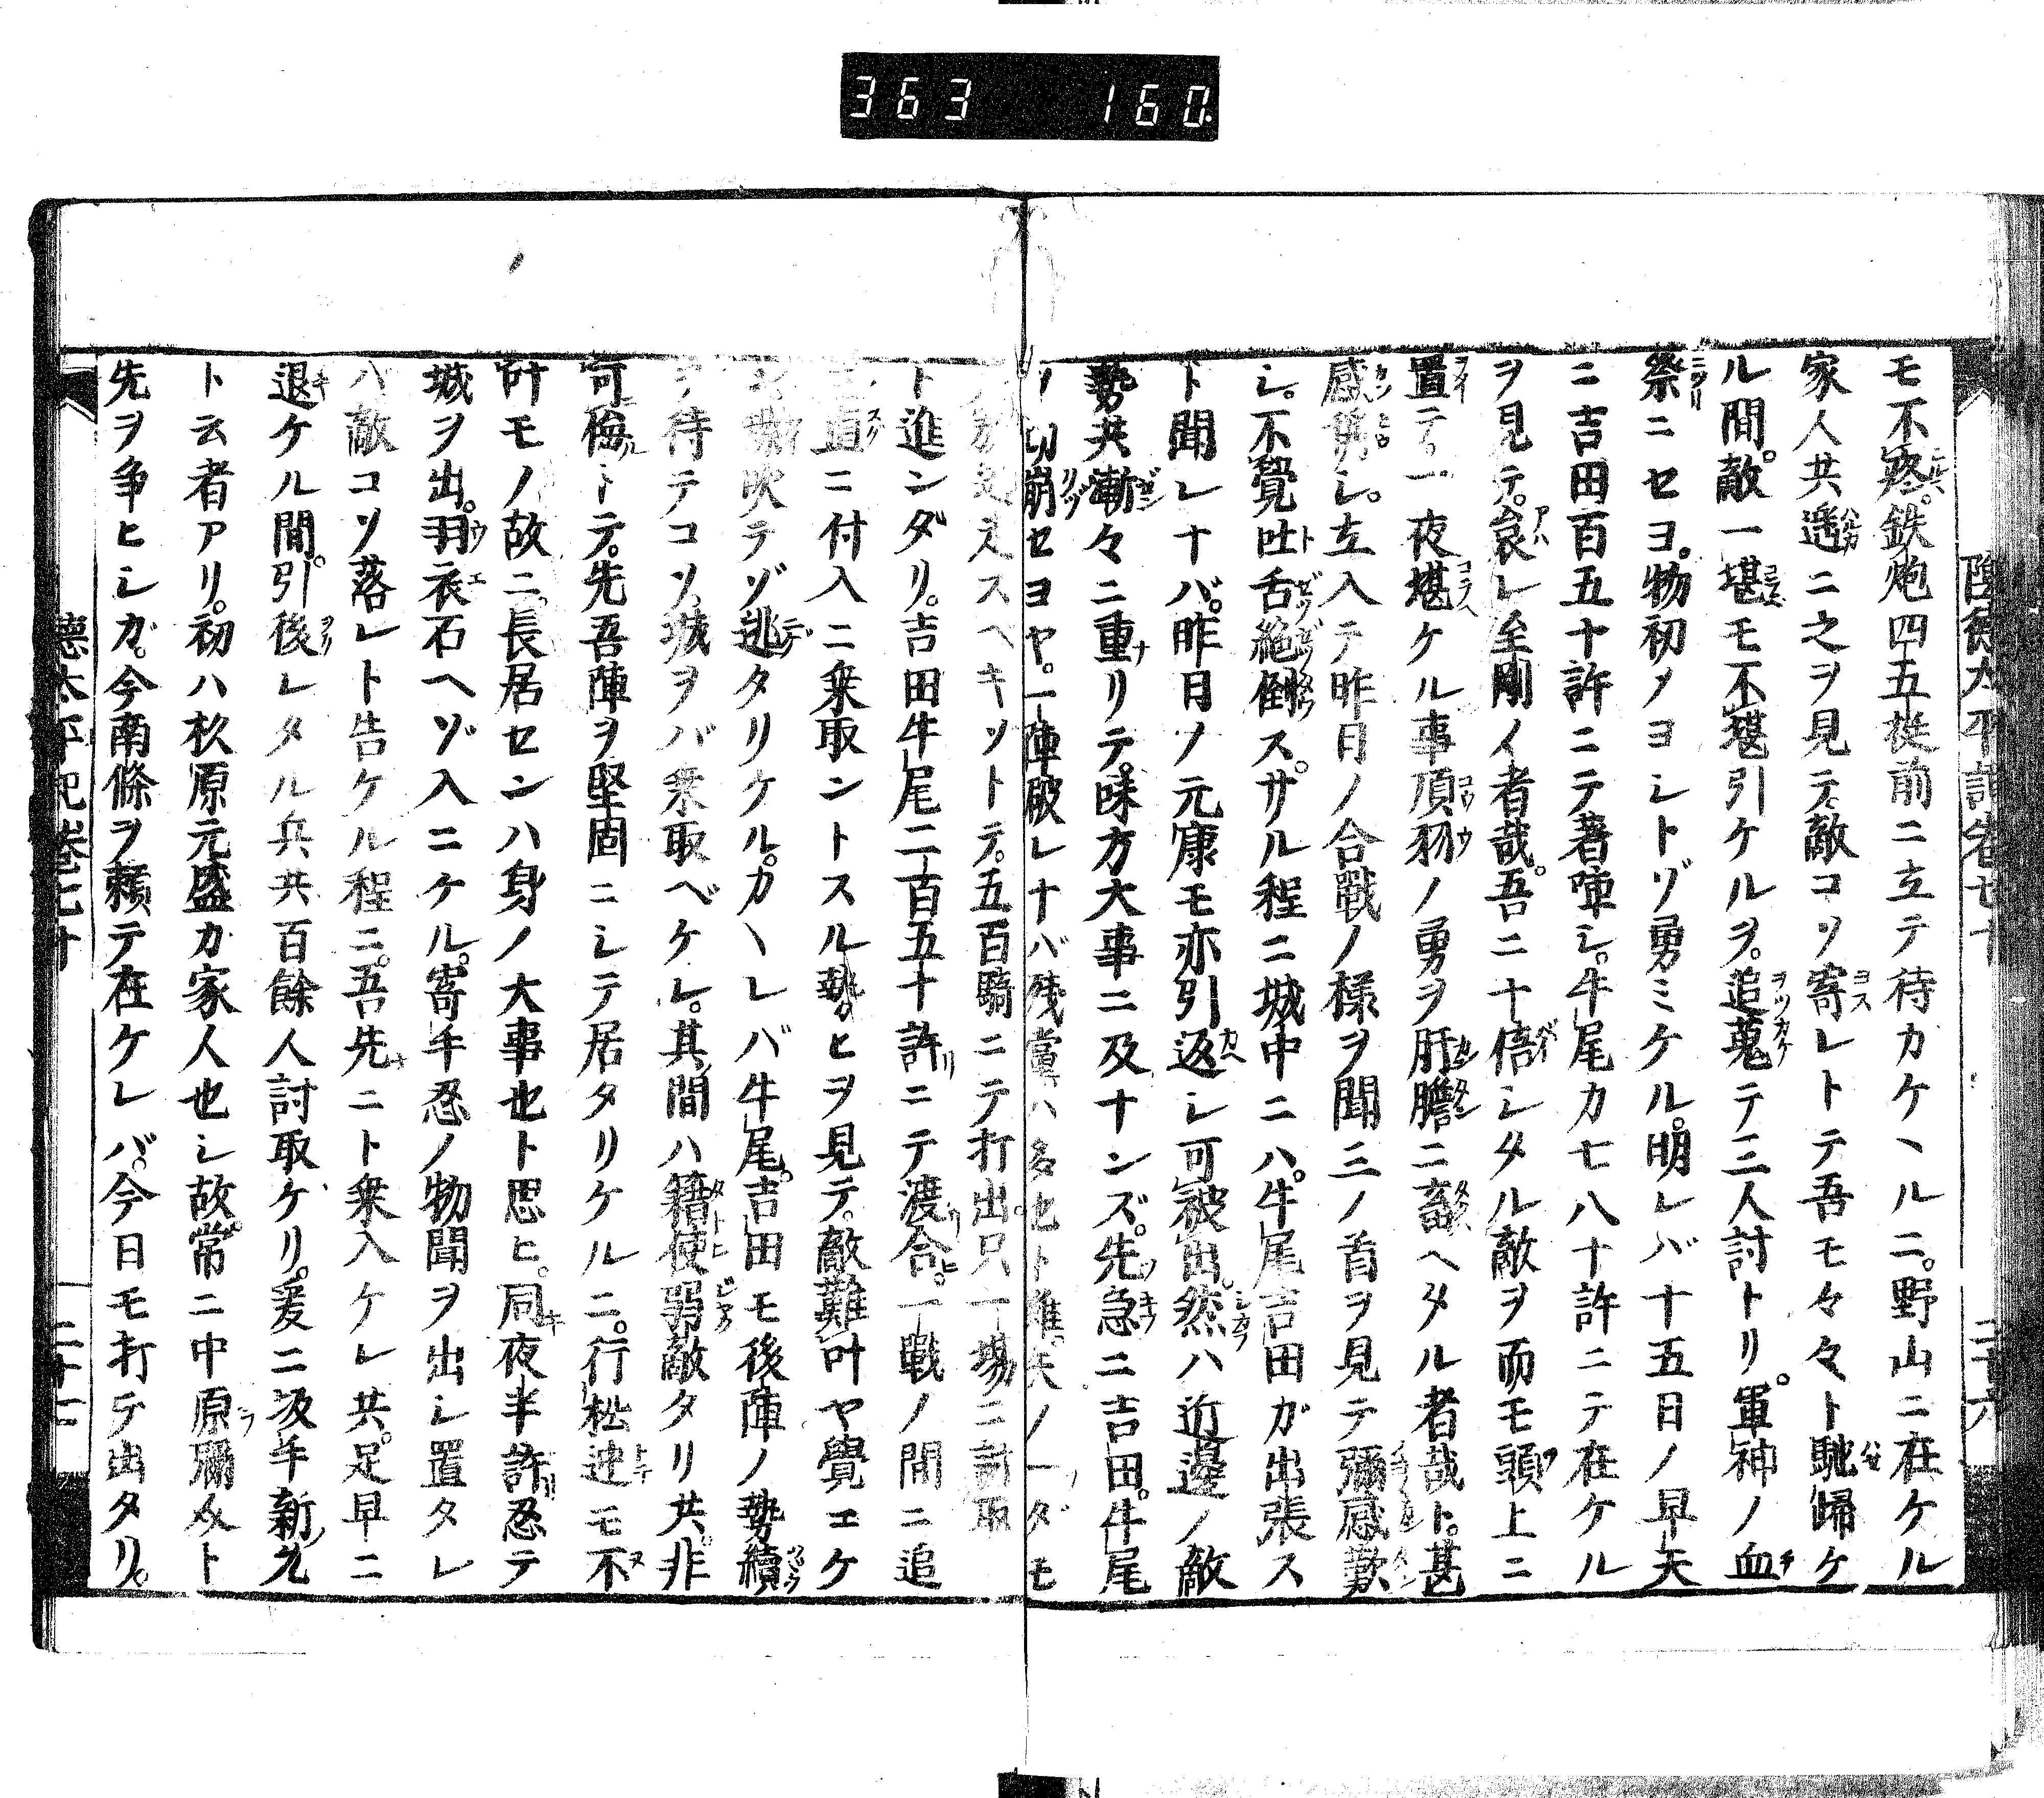 363 160
モ不疼。鉄炮四五挺前ニ立テ待カケヽルニ。野山ニ在ケル
家人共遥ニ之ヲ見テ敵コソ寄レトテ吾モ々々ト馳帰ケ
ル間。敵一堪モ不堪引ケルヲ。追蒐テ三人討トリ。軍神ノ血
祭ニセヨ。物初メヨシトゾ勇ミケル。明レバ十五日ノ早天
ニ吉田百五十許ニテ著陣シ。牛尾カ七八十許ニテ在ケル
ヲ見テ。哀レ至剛ノ者哉。吾ニ十倍シタル敵ヲ而モ頭上ニ
置テ。一夜堪ケル事項羽ノ勇ヲ肝膽ニ畜ヘタル者哉ト。甚
感シ。立入テ昨日ノ合戰ノ様ヲ聞三ノ首ヲ見テ彌感歎
シ。不覺吐舌絶倒ス。サル程ニ城中ニハ。牛尾吉田ガ出張ス
ト聞レナバ。昨日ノ元康モ亦引返シ可被出。然ハ近邊ノ敵
勢共漸々ニ重リテ。味方大事ニ及ナンズ。先急ニ吉田。牛尾
ノ切崩セヨヤ。一陣破レナバ残黨ハ多也ト雖。矢ノ一ダモ
スヘキソトテ。五百騎ニテ打出。只一場ニ討取
ト進ンダリ。吉田牛尾二百五十許ニテ渡合。一戰ノ間ニ追
直ニ付入ニ乗取ントスル勢ヒヲ見テ。敵難叶ヤ覺エケ
吹テゾ逃タリケル。カヽレバ牛尾。吉田モ後陣ノ勢續
ヲ待テコソ。城ヲバ乗取ベケレ。其間ハ籍使弱敵タリ共。非
可侮トテ。先吾陣ヲ堅固ニシテ居タリケルニ。行松迚モ不
叶モノ故ニ。長居センハ身ノ大事也ト思ヒ。同夜半許忍テ
城ヲ出。羽衣石ヘゾ入ニケル。寄手忍ノ物聞ヲ出シ置タレ
ハ敵コソ落レト告ケル程ニ。吾先ニト乗入ケレ共。足早ニ
退ケル間。引後レタル兵共百餘人討取ケリ。爰ニ坂手新允
ト云者アリ。初ハ杦原元盛カ家人也シ故。常ニ中原ト
先ヲ争ヒシカ。今南條ヲ頼テ在ケレバ。今日モ打テ出タリ。
德太平記巻七十